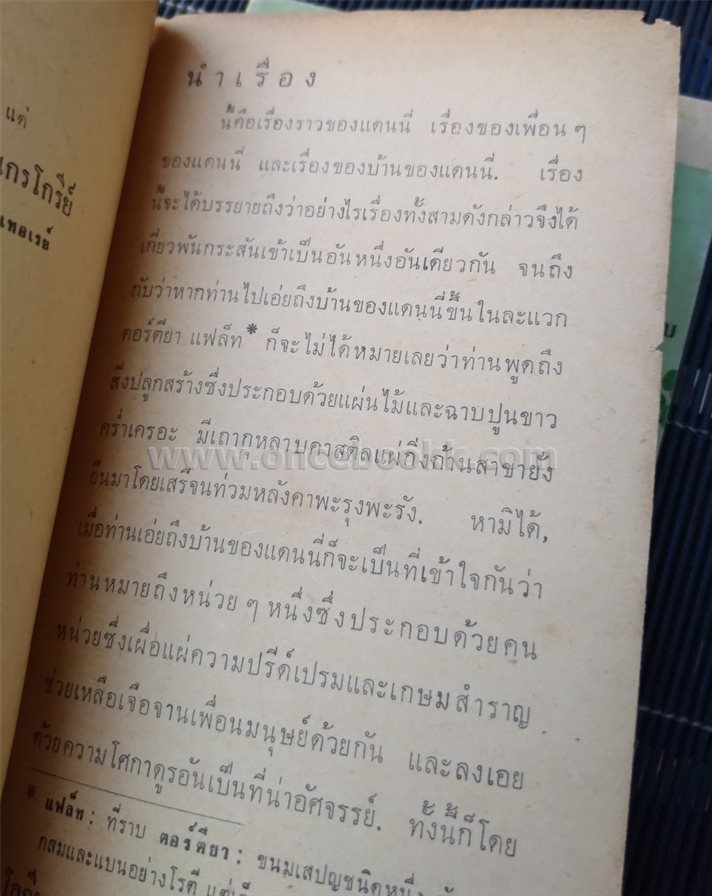 แด่
นำเรื่อง
นี้คือเรื่องราวของแดนนี่ เรื่องของเพื่อนๆ
ของแดนนี่ และเรื่องของบ้านของแดนนี่. เรื่อง
นี้จะได้บรรยายถึงว่าอย่างไรเรื่องทั้งสามดังกล่าวจึงได้
เกี่ยวพันกระสันเข้าเป็นอันหนึ่งอันเดียวกัน จนถึง
กับว่าหากท่านไปเอ่ยถึงบ้านของแดนนี่ขึ้นในละแวก
ตอร์ตียา แฟล็ท * ก็จะไม่ได้หมายเลยว่าท่านพูดถึง
สิ่งปลูกสร้างซึ่งประกอบด้วยแผ่นไม้และฉาบปูนขาว
คร่ำเครอะ มีเถากุหลาบคาสติลแผ่กิ่งก้านสาขายัง
ยืนมาโดยเสรีจนท่วมหลังคาพะรุงพะรัง. หามิได้,
เมื่อท่านเอ่ยถึงบ้านของแดนนี่ก็จะเป็นที่เข้าใจกันว่า
ท่านหมายถึงหน่วยๆ หนึ่งซึ่งประกอบด้วยคน
หน่วยซึ่งเผื่อแผ่ความปรีด์เปรมและเกษมสำราญ
ช่วยเหลือเจือจานเพื่อนมนุษย์ด้วยกัน และลงเอย
ด้วยความโศกาดูรอันเป็นที่น่าอัศจรรย์. ทั้งนี้ก็โดย
* แฟล็ท : ที่ราบ ตอร์ตียา : ขนมเสปญชนิดหนึ่ง
กลมและแบนอย่างโรตี
www.oncebookk.com